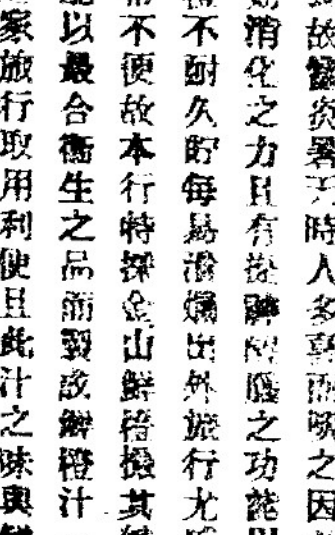 故當炎暑天時人多喜而吸之因
消化之力且有提之功能
不耐久貯每易潰爛出外旅行尤
不便故本行特採金山鮮橙搾其
以最合衛生之品而製成鮮橙汁
家旅行取用利便且此汁之味與